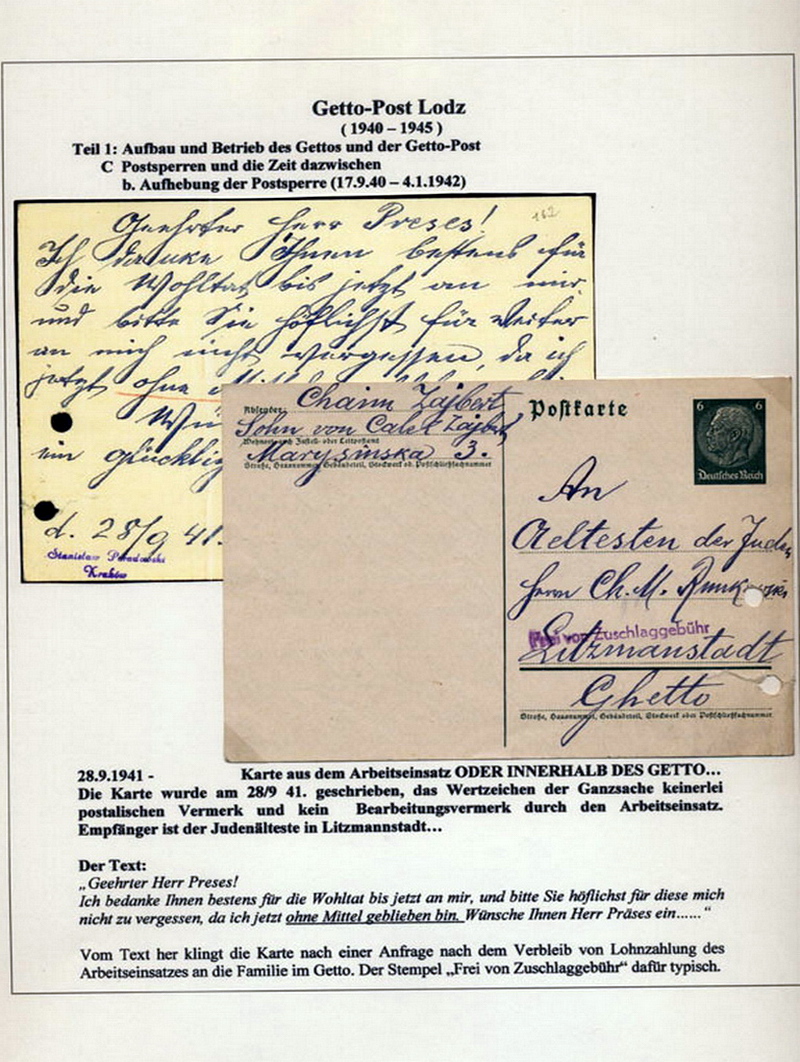 Getto-Post Lodz
( 1940 – 1945 )
Teil 1: Aufbau und Betrieb des Gettos und der Getto-Post
C Postsperren und die Zeit dazwischen
b. Aufhebung der Postsperre (17.9.40 – 4.1.1942)
182
Geehrter Herr Preses!
Ich danke Ihnen bestens für
die Wohltat bis jetzt an mir,
und bitte Sie höflichst für weiter
an mich nicht vergessen, da ich
jetzt ohne
ein glücklig
d. 28/9 41.
Stanisław
Kraków
Absender:
Chaim Zajbert
Sohn von Calel Zajbert
Wohnort, auch Zustell- oder Leitpostamt
Marysinska 3.
Straße, Hausnummer, Gebäudeteil, Stockwerk od. Postschließfachnummer
Postkarte
6 6
Deutsches Reich
An
Aeltesten der Juden
Herrn Ch. M. Rumkowski
Frei von Zuschlaggebühr
Litzmanstadt
Ghetto
Straße, Hausnummer, Gebäudeteil, Stockwerk oder Postschließfachnummer
28.9.1941 - Karte aus dem Arbeitseinsatz ODER INNERHALB DES GETTO...
Die Karte wurde am 28/9 41. geschrieben, das Wertzeichen der Ganzsache keinerlei
postalischen Vermerk und kein Bearbeitungsvermerk durch den Arbeitseinsatz.
Empfänger ist der Judenälteste in Litzmannstadt...
Der Text:
„Geehrter Herr Preses!
Ich bedanke Ihnen bestens für die Wohltat bis jetzt an mir, und bitte Sie höflichst für diese mich
nicht zu vergessen, da ich jetzt ohne Mittel geblieben bin. Wünsche Ihnen Herr Präses ein......“
Vom Text her klingt die Karte nach einer Anfrage nach dem Verbleib von Lohnzahlung des
Arbeitseinsatzes an die Familie im Getto. Der Stempel „Frei von Zuschlaggebühr“ dafür typisch.